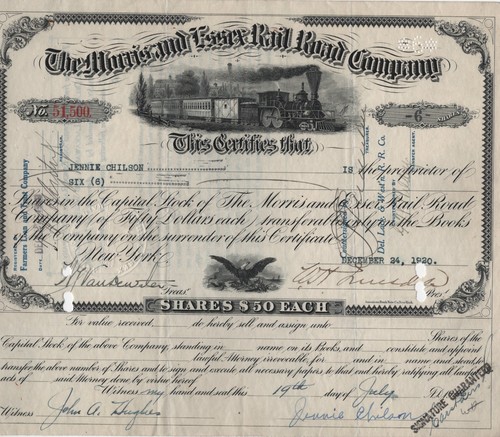 The Morris and Essex Rail Road Company
No. 51,500
6
This Certifies that
JENNIE CHILSON
is the proprietor of
SIX (6)
Shares in the Capital Stock of The Morris and Essex Rail Road
Company of Fifty Dollars each, transferable only on the Books
of the Company on the surrender of this Certificate.
New York
DECEMBER 24, 1920.
Treas.
Pres.
SHARES $50 EACH
Farmers Loan and Trust Company
Del. Lack. & West'n. R. R. Co.
For value received, do hereby sell and assign unto
Shares of the
Capital Stock of the above Company, standing in name on its Books, and constitute and appoint
lawful Attorney irrevocable, for and in name and stead, to
transfer the above number of Shares and to sign and execute all necessary papers to that end hereby ratifying all lawful
acts of said Attorney done by virtue hereof
Witness my hand and seal this 19th day of July
Witness John A. Hughes
Jennie Chilson
SIGNATURE GUARANTEED